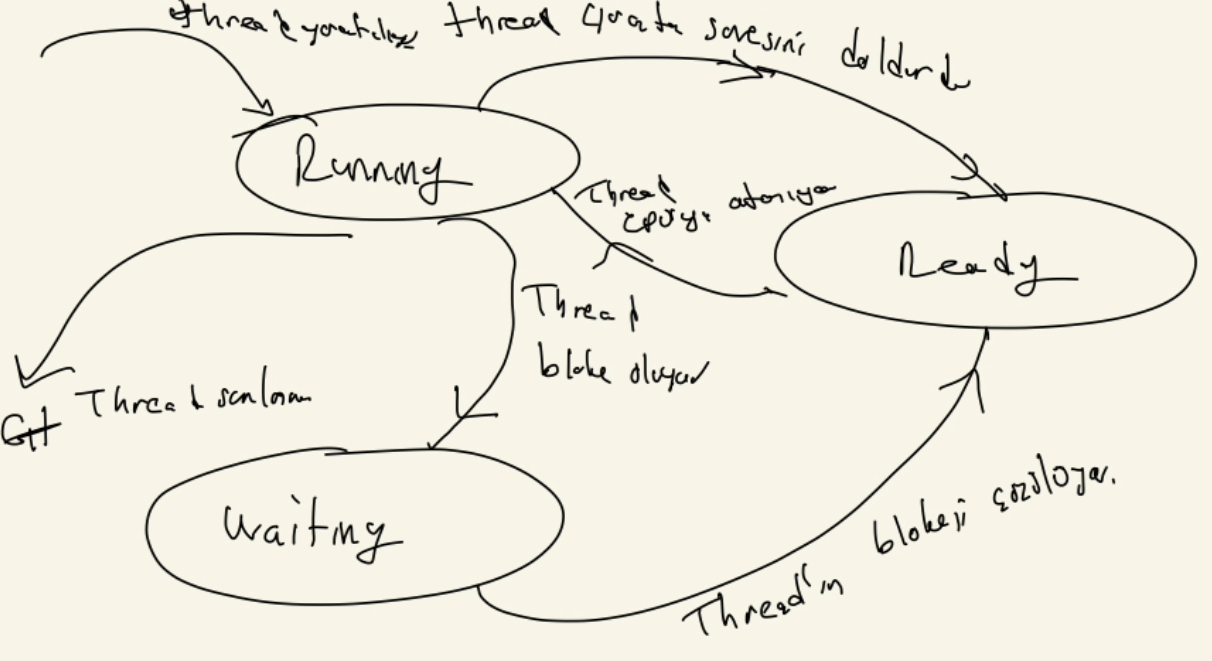 thread yaratılış thread quanta süresini doldurdu
Running
Thread
CPU'ya atanıyor
Ready
Thread
bloke oluyor
Thread sonlanan
Waiting
Thread'in blokeji çözülüyor.